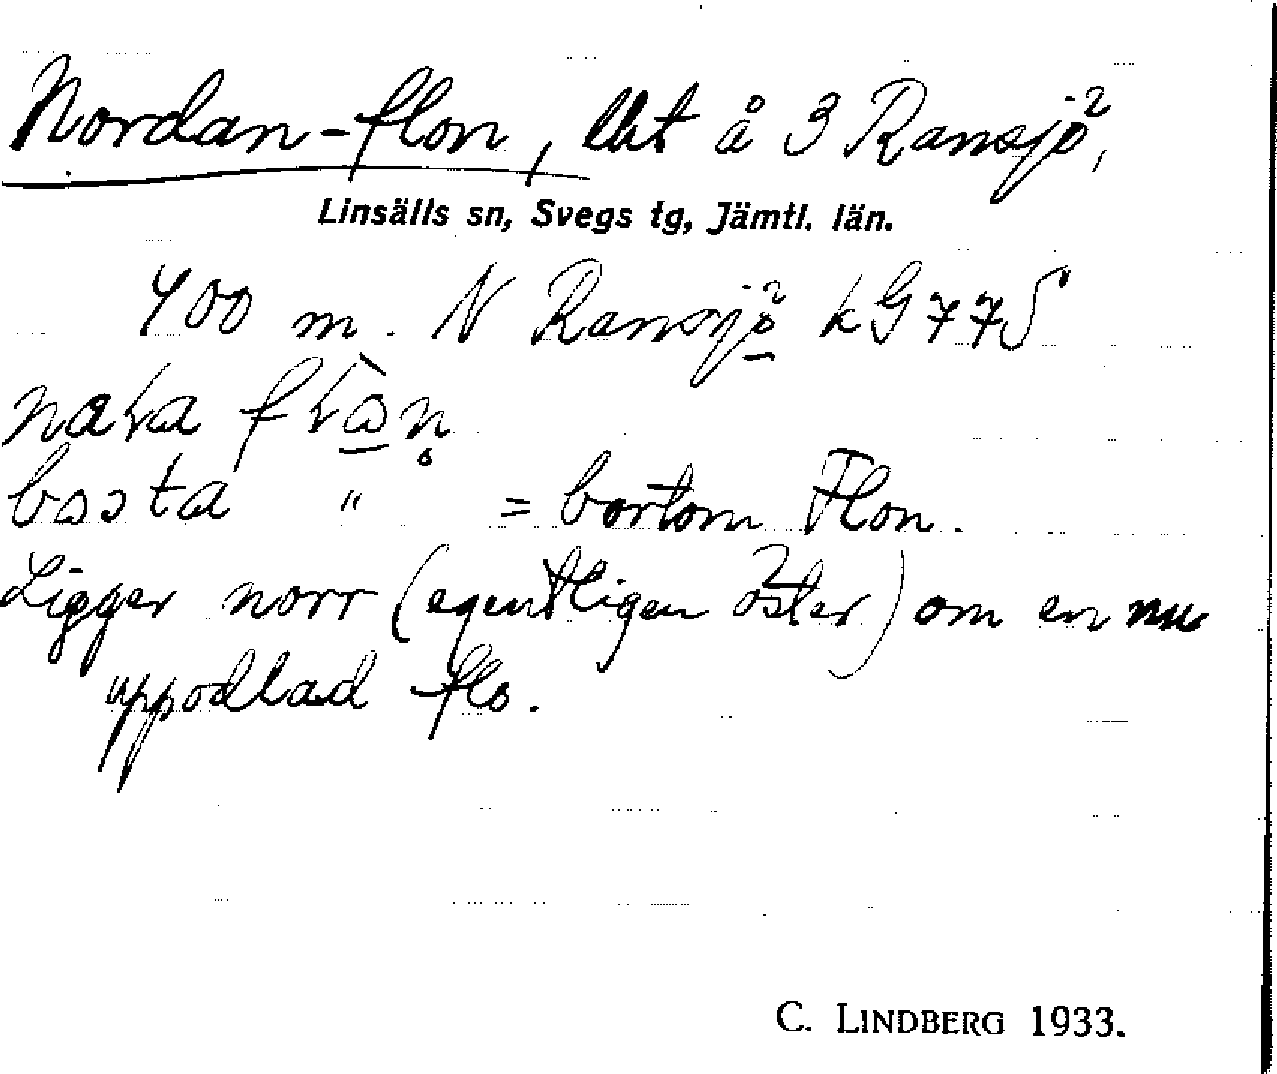 Nordan-flon, lht å 3 Ransjö²,
Linsälls sn, Svegs tg, Jämtl. län.
400 m. N Ransjö² kG 775
naLa fLàn̥
bosta " = bortom Flon.
Ligger norr (egentligen öster) om en nu
uppodlad flo.
C. LINDBERG 1933.